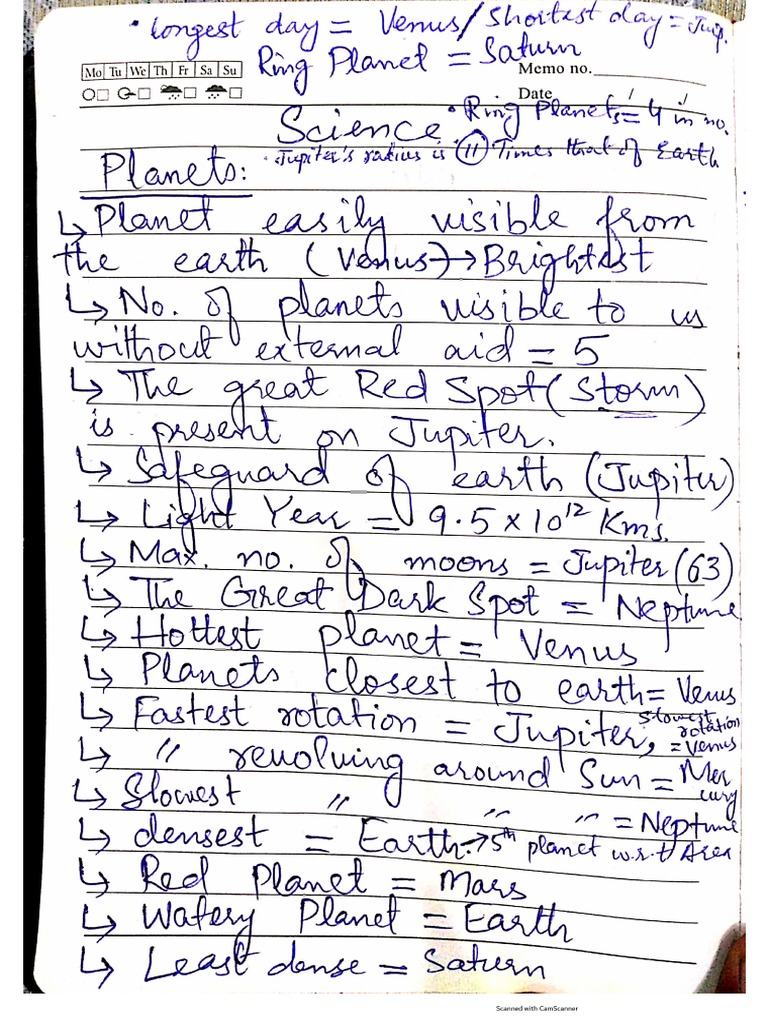 • longest day = Venus/Shortest day = Jup.
Ring Planet = Saturn
Mo Tu We Th Fr Sa Su
Memo no.
Date
• Ring Planets = 4 in no.
Science
• Jupiter's radius is 11 Times that of Earth
Planets:
↳ Planet easily visible from
the earth (Venus) → Brightest
↳ No. of planets visible to us
without external aid = 5
↳ The great Red Spot (Storm)
is present on Jupiter.
↳ Safeguard of earth (Jupiter)
↳ Light Year = 9.5 x 10¹² Kms.
↳ Max. no. of moons = Jupiter (63)
↳ The Great Dark Spot = Neptune
↳ Hottest planet = Venus
↳ Planets closest to earth = Venus
↳ Fastest rotation = Jupiter, slowest rotation = Venus
↳ " revolving around Sun = Mercury
↳ Slowest " " " = Neptune
↳ densest = Earth. → 5th planet w.r.t Area
↳ Red Planet = Mars
↳ Watery Planet = Earth
↳ Least dense = Saturn
Scanned with CamScanner